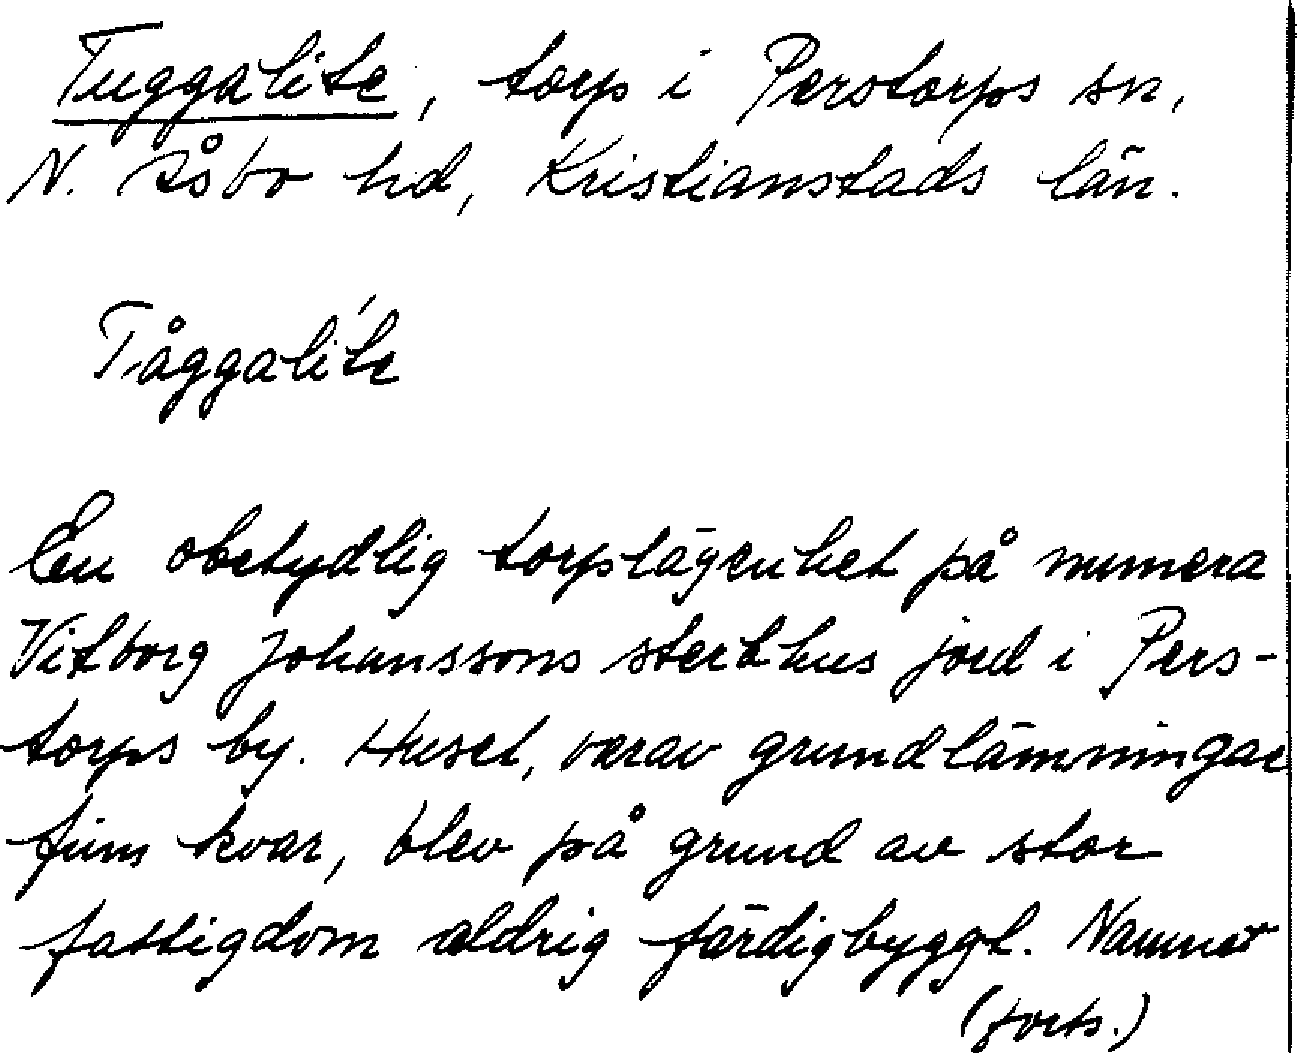 Tuggalite, torp i Perstorps sn,
N. Åsbo hd, Kristianstads län.
Tåggali´te
En obetydlig torplägenhet på numera
Vitborg Johanssons sterbhus jord i Pers-
torps by. Huset, varav grundlämningar
finns kvar, blev på grund av stor
fattigdom aldrig färdigbyggt. Namnet
(forts.)